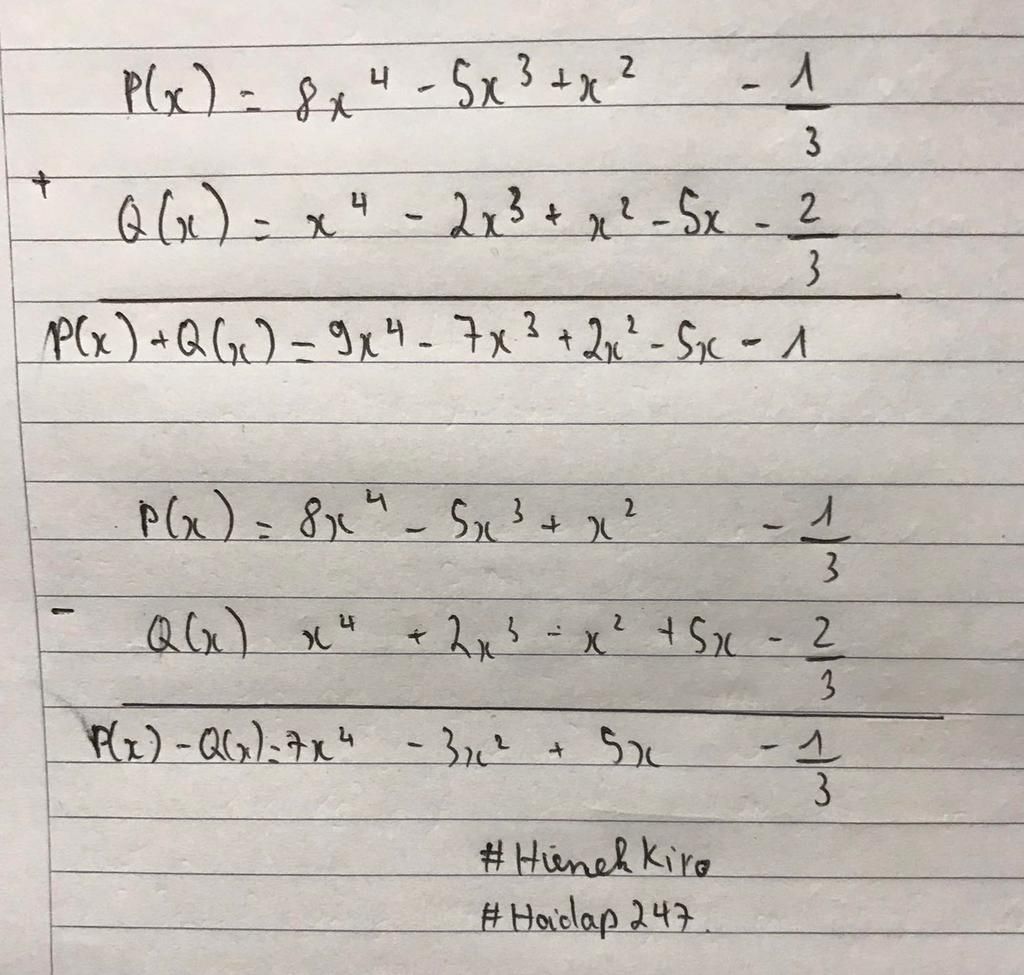 P(x) = 8x⁴ - 5x³ + x² - 1/3
+
Q(x) = x⁴ - 2x³ + x² - 5x - 2/3
P(x) + Q(x) = 9x⁴ - 7x³ + 2x² - 5x - 1
P(x) = 8x⁴ - 5x³ + x² - 1/3
-
Q(x) x⁴ + 2x³ - x² + 5x - 2/3
P(x) - Q(x) = 7x⁴ - 3x² + 5x - 1/3
#HienehKiro
#Hoidap247.